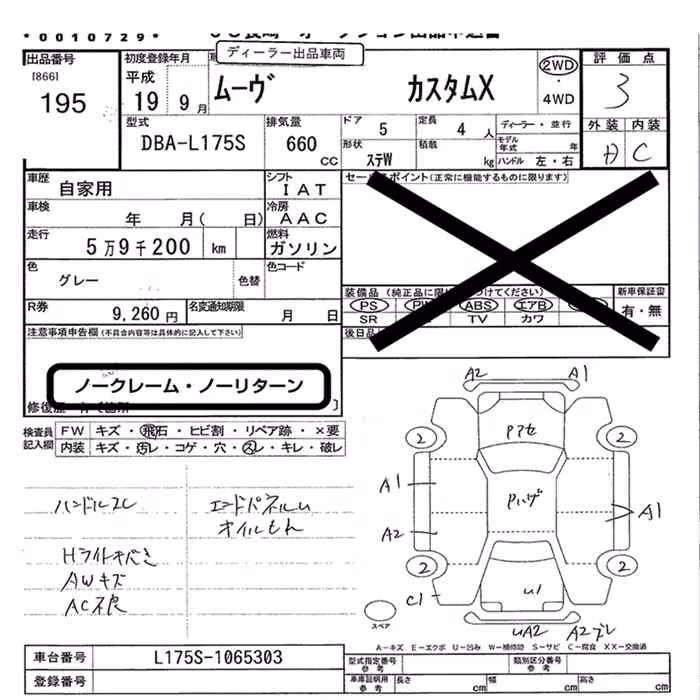 *0010729*
ディーラー出品車両
出品番号
[866]
195
初度登録年月
平成
19 9月
ムーヴ カスタムX
2WD
・
4WD
評価点
3
外装 内装
C
型式
DBA-L175S
排気量
660
CC
ドア 5
定員 4 人
ディーラー・並行
形状
ステW
積載 kg
モデル年式 年
ハンドル 左・右
車歴
自家用
シフト
IAT
車検
年 月( 日)
冷房
AAC
走行
5万9千200 km
燃料
ガソリン
色
グレー
色替
色コード
R券
9,260円
名変通知期限
月 日
セールスポイント(正常に機能するものに限ります)
新車保証書
有・無
PS ABS エアB
SR TV カワ
後日品
注意事項申告欄(不具合内容等は具体的に記入して下さい)
ノークレーム・ノーリターン
検査員
記入欄
FW キズ・飛石・ヒビ割・リペア跡・×要
内装 キズ・汚レ・コゲ・穴・スレ・キレ・破レ
ハンドルスレ
エンドパネルu
オイルもれ
Hライトキズ
AWキズ
AC不良
A2 A1
Pアセ
2 2
A1
Pハゲ
A1
A2
2 2
C1
U1
uA2 A2ズレ
スペア
A-キズ E-エクボ U-凹み W-補修跡 S-サビ C-腐食 XX-交換済
車台番号
L175S-1065303
登録番号
型式指定番号
参考
類別区分番号
参考
車庫証明用
参考
長さ cm
幅 cm
高さ cm